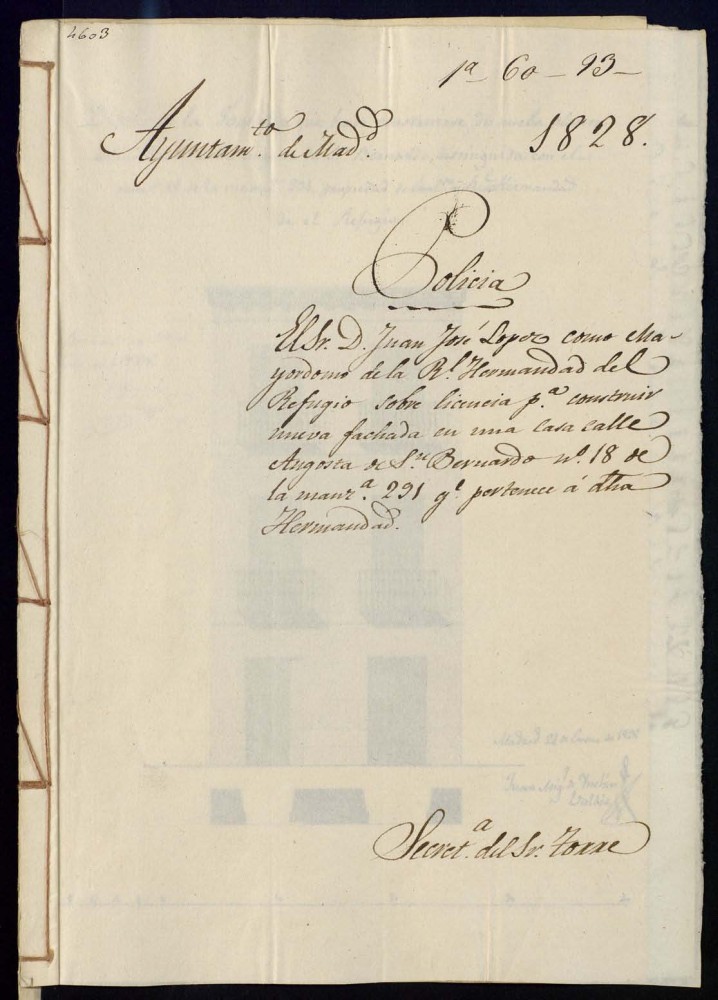 4603
1ª 60-93-
Ayuntam.to de Madd 1828.
Policia
El Sr. D. Juan José Lopez como Ma-
yordomo de la Rl. Hermandad del
Refugio sobre licencia p.a construir
nueva fachada en una casa calle
Angosta de Sn. Bernardo nº. 18 de
la manz.a 291 q.e pertenece á dha
Hermandad.
Secret.a del Sr. Torre